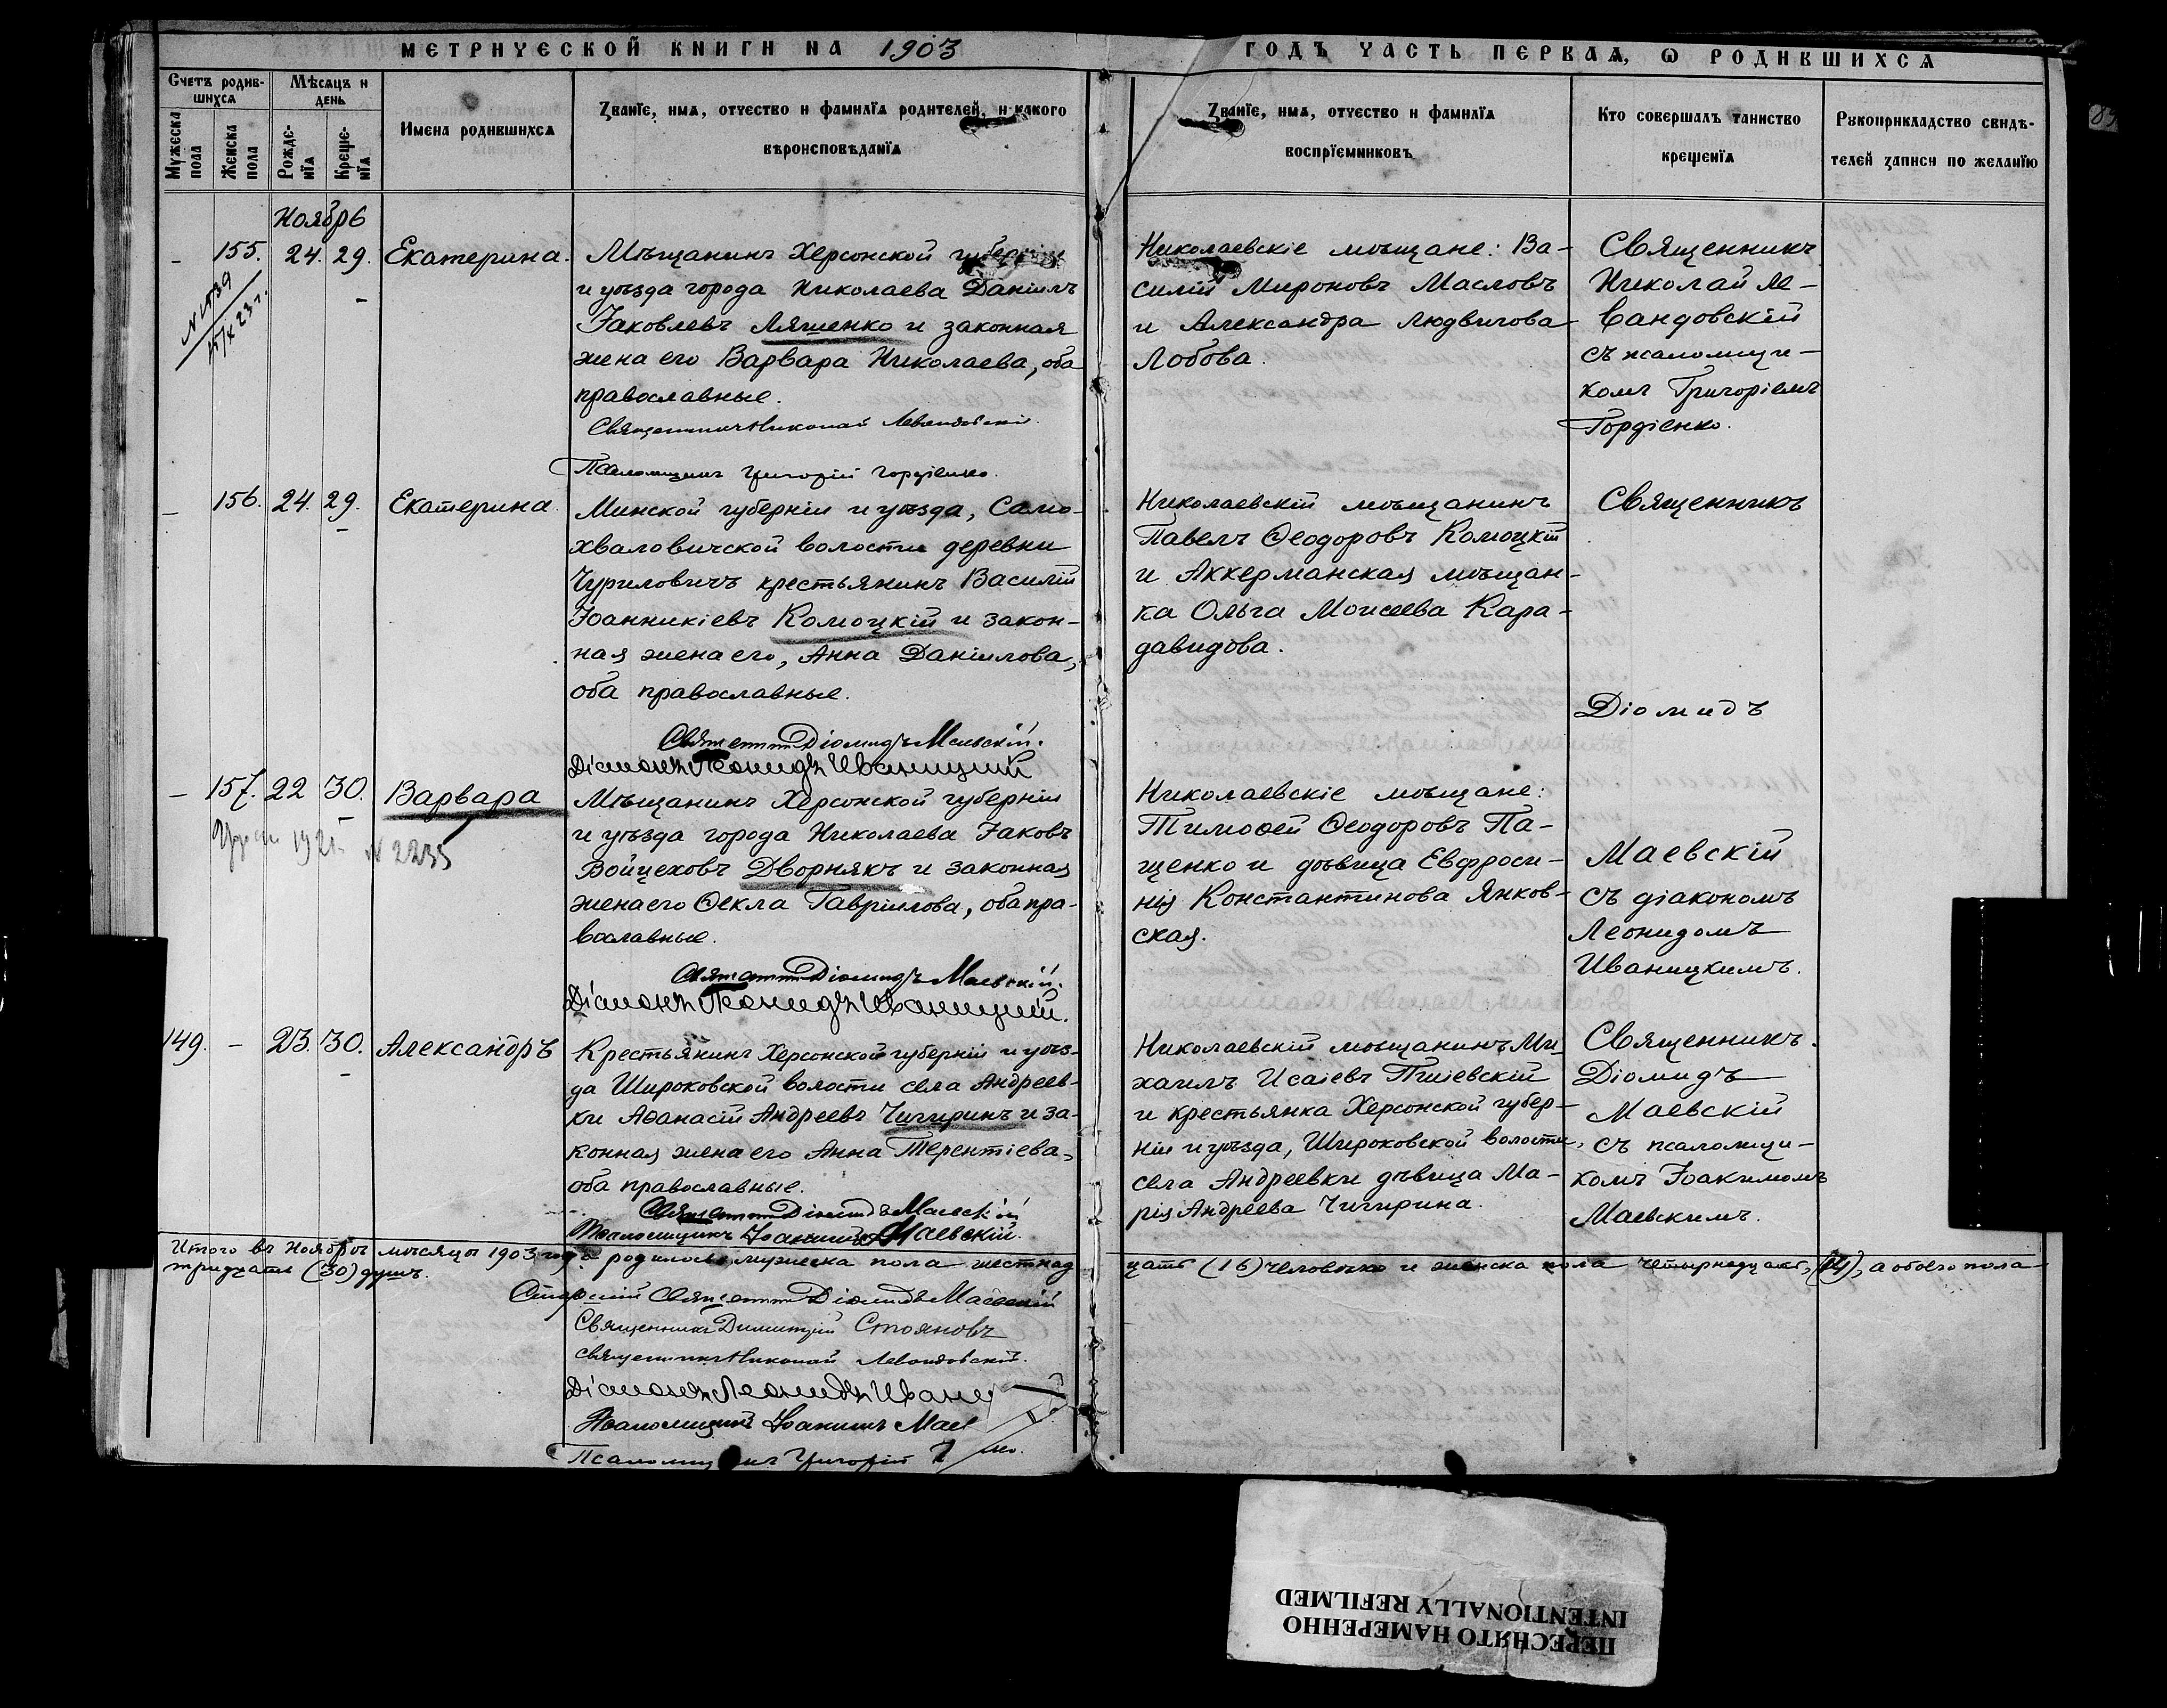 МЕТРИЧЕСКОЙ КНИГИ НА 1903
ГОДЪ ЧАСТЬ ПЕРВАѦ, Ѡ РОДИВШИХСѦ
Счетъ родив-
шихсѧ
Мѣсѧцъ и
день
Мужеска
пола
Женска
пола
Рожде-
нїѧ
Креще-
нїѧ
Имена родившихсѧ
Званїе, имѧ, отчество и фамилїѧ родителей, и какого
вѣроисповѣданїѧ
Званїе, имѧ, отчество и фамилїѧ
воспрїемниковъ
Кто совершалъ таинство
крещенїѧ
Рукоприкладство свидѣ-
телей записи по желанїю
Ноябрь
- 155. 24. 29. Екатерина.
Мѣщанинъ Херсонской губерніи
и уѣзда города Николаева Даніилъ
Іаковлевъ Ляшенко и законная
жена его Варвара Николаева, оба
православные.
Священникъ Николай Левандовскій.
Псаломщикъ Григорій Гордіенко.
Николаевскіе мѣщане: Ва-
силій Мироновъ Масловъ
и Александра Людвигова
Лобова.
Священникъ
Николай Ле-
вандовскій
съ псаломщи-
комъ Григоріемъ
Гордіенко.
- 156. 24. 29. Екатерина.
Минской губерніи и уѣзда, Само-
хваловичской волости деревни
Чуриловичъ крестьянинъ Василій
Іоанникіевъ Комоцкій и закон-
ная жена его, Анна Даніилова,
оба православные.
Священникъ Діомидъ Маевскій.
Діаконъ Леонидъ Иваницкій
Николаевскій мѣщанинъ
Павелъ Ѳеодоровъ Комоцкій
и Аккерманская мѣщан-
ка Ольга Моисеева Кара-
давидова.
Священникъ
Діомидъ
- 157. 22 30. Варвара
1921 N 2235
Мѣщанинъ Херсонской губерніи
и уѣзда города Николаева Іаковъ
Войцеховъ Дворнякъ и законная
жена его Ѳекла Гавріилова, оба пра-
вославные.
Священникъ Діомидъ Маевскій.
Діаконъ Леонидъ Иваницкій.
Николаевскіе мѣщане:
Тимоѳей Ѳеодоровъ Па-
щенко и дѣвица Евфроси-
нія Константинова Янков-
ская.
Маевскій
съ діакономъ
Леонидомъ
Иваницкимъ.
149. - 23. 30. Александръ
Крестьянинъ Херсонской губерніи и уѣз-
да Широковской волости села Андреев-
ки Аѳанасій Андреевъ Чигиринъ и за-
конная жена его Анна Терентіева,
оба православные.
Священникъ Діомидъ Маевскій
Псаломщикъ Іоакимъ Маевскій.
Николаевскій мѣщанинъ Ми-
хаилъ Исаіевъ
и крестьянка Херсонской губер-
ніи и уѣзда, Широковской волости,
села Андреевки дѣвица Ма-
рія Андреева Чигирина.
Священникъ
Діомидъ
Маевскій
съ псаломщи-
комъ Іоакимомъ
Маевскимъ.
Итого въ Ноябрѣ мѣсяцѣ 1903 года родилось мужеска пола шестнад
цать (16) человѣкъ и женска пола четырнадцать (14), а обоего пола
тридцать (30) душъ.
Старшій Священникъ Діомидъ Маевскій
Священникъ Димитрій Стояновъ
Священникъ Николай Левандовскій.
Діаконъ Леонидъ Ивани
Псаломщикъ Іоакимъ Мае
Псаломщикъ Григорій
ПЕРЕСНЯТО НАМЕРЕННО
INTENTIONALLY REFILMED